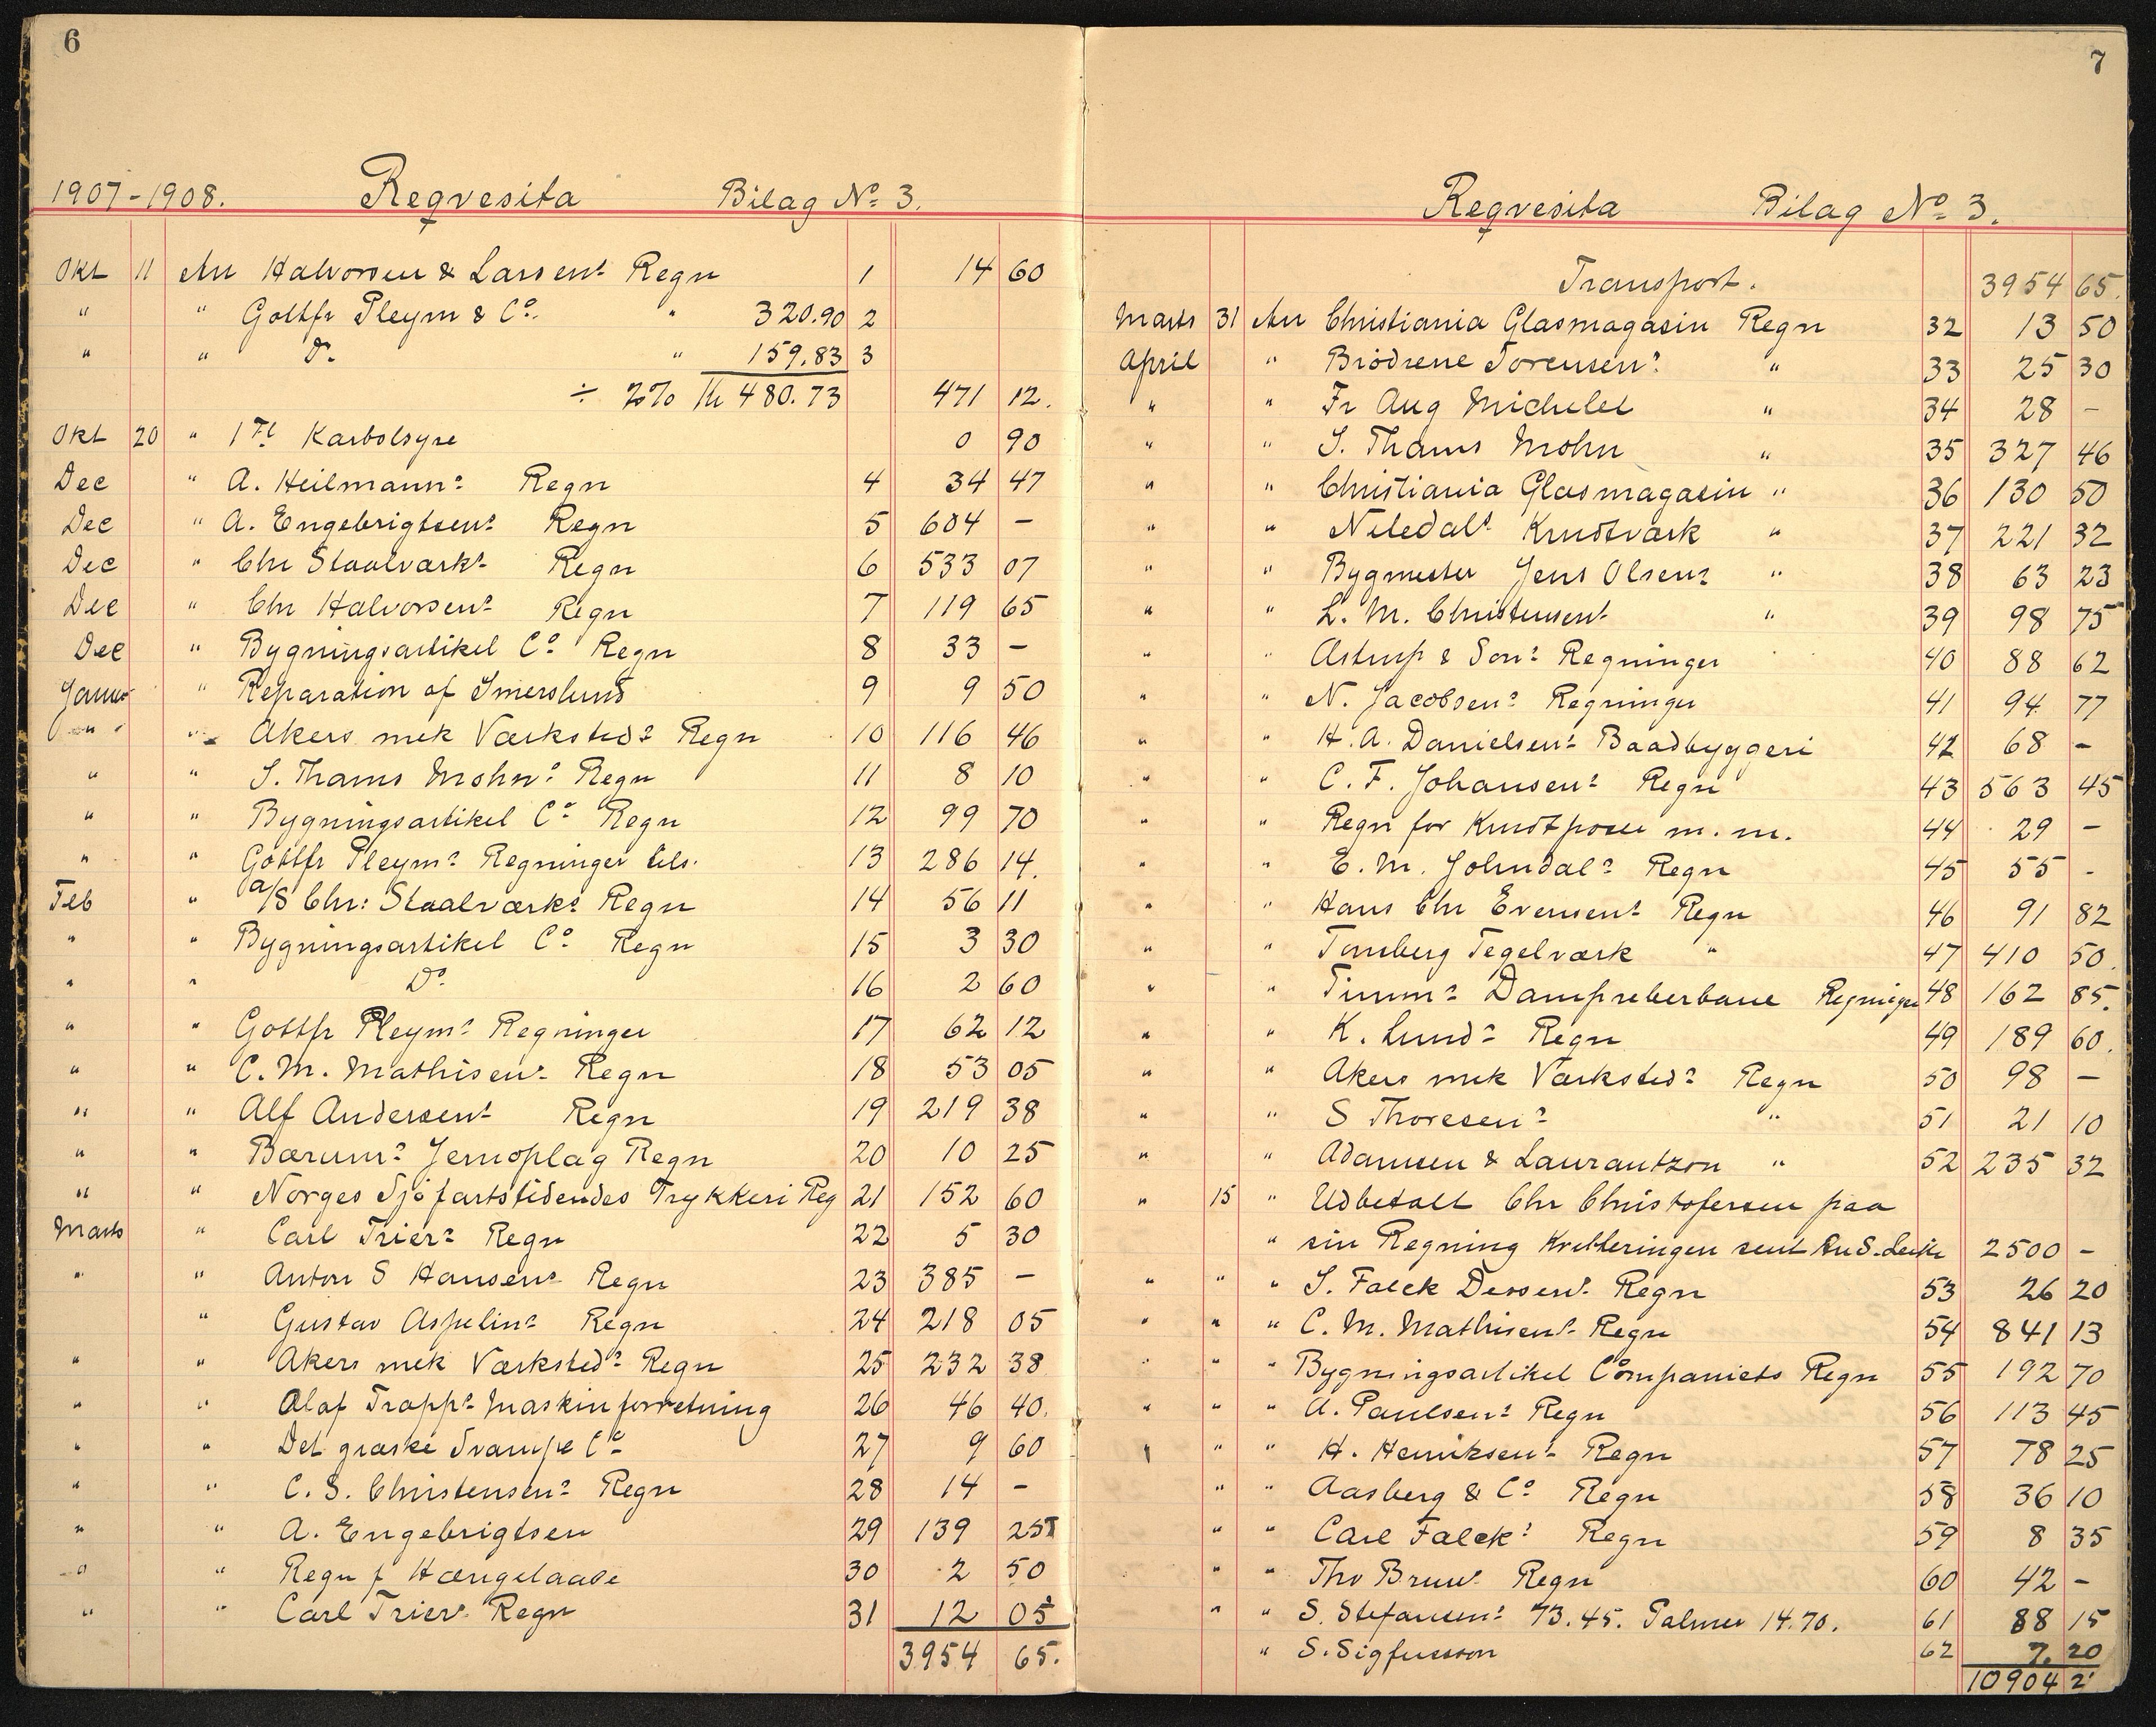 6
1907-1908. Reqvesita Bilag No 3.
Okt 11 An Halvorsen & Larsens Regn 1 14 60
" " Gottfr Pleym & Co. " 320.90 2
" " Do " 159.83 3
÷ 2% Kr 480.73 471 12.
Okt 20 " 1 Fl Karbolsyre 0 90
Dec " A. Heilmanns Regn 4 34 47
Dec " A. Engebrigtsens Regn 5 604 –
Dec " Chr Staalværks Regn 6 533 07
Dec " Chr Halvorsens Regn 7 119 65
Dec " Bygningsartikel Co Regn 8 33 –
Januar " Reparation af Imerslund 9 9 50
" " Akers mek Værksteds Regn 10 116 46
" " S. Thams Mohns Regn 11 8 10
" " Bygningsartikel Co Regn 12 99 70
" " Gottfr Pleyms Regninger tils. 13 286 14.
Feb " A/S Chr: Staalværks Regn 14 56 11
" " Bygningsartikel Co Regn 15 3 30
" " Do 16 2 60
" " Gottfr Pleyms Regninger 17 62 12
" " C. M. Mathisens Regn 18 53 05
" " Alf Andersens Regn 19 219 38
" " Bærums Jernoplag Regn 20 10 25
" " Norges Sjöfartstidendes Trykkeri Reg 21 152 60
Marts " Carl Triers Regn 22 5 30
" " Anton S Hansens Regn 23 385 –
" Gustav Aspelins Regn 24 218 05
" " Akers mek Værksteds Regn 25 232 38
" " Olaf Trapps Maskinforretning 26 46 40.
" " Det græske Svampe Co 27 9 60
" " C. S. Christensens Regn 28 14 –
" " A. Engebrigtsen 29 139 25
" " Regn f Hængelaase 30 2 50
" " Carl Triers Regn 31 12 05
3954 65.
7
Reqvesita Bilag No 3.
Transport. 3954 65.
Marts 31 An Christiania Glasmagasin Regn 32 13 50
April " Brödrene Sorensens " 33 25 30
" " Fr Aug Michelet " 34 28 –
" " S. Thams Mohn " 35 327 46
" " Christiania Glasmagasin " 36 130 50
" " Nitedals Krudtværk " 37 221 32
" " Bygmester Jens Olsens " 38 63 23
" " L. M. Christensens " 39 98 75
" " Astrup & Sons Regninger 40 88 62
" " N. Jacobsens Regninger 41 94 77
" " H. A. Danielsens Baadbyggeri 42 68 –
" " C. F. Johansens Regn 43 563 45
" " Regn for Krudtposer m. m. 44 29 –
" " E. M. Johndals Regn 45 55 -
" " Hans Chr Evensens Regn 46 91 82
" " Tomberg Tegelværk " 47 410 50.
" " Timms Dampreberbane Regninger 48 162 85.
" " K. Lunds Regn 49 189 60.
" " Akers mek Værksteds Regn 50 98 –
" " S Thoresens " 51 21 10
" " Adamsen & Laurantzon " 52 235 32
" 15 " Udbetalt Chr Christofersen paa
" sin Regning Kvitteringen sent 2500 –
" " " S. Falck Dessens Regn 53 26 20
" " " C. M. Mathisens Regn 54 841 13
" " " Bygningsartikel Companiets Regn 55 192 70
" " " A. Paulsens Regn 56 113 45
" " " H. Henriksens Regn 57 78 25
" " Aasberg & Co Regn 58 36 10
" " Carl Falcks Regn 59 8 35
" " Thv Bruns Regn 60 42 –
" " S. Stefansens 73.45. Palmer 14.70. 61 88 15
" S. Sigfusson 62 7. 20
10904 2